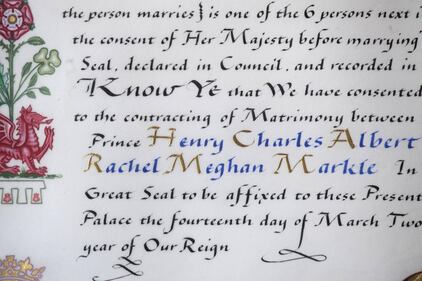 the person marries} is one of the 6 persons next i
the consent of Her Majesty before marrying
Seal, declared in Council, and recorded in
Know Ye that We have consented
to the contracting of Matrimony between
Prince Henry Charles Albert
Rachel Meghan Markle In
Great Seal to be affixed to these Present
Palace the fourteenth day of March Two
year of Our Reign